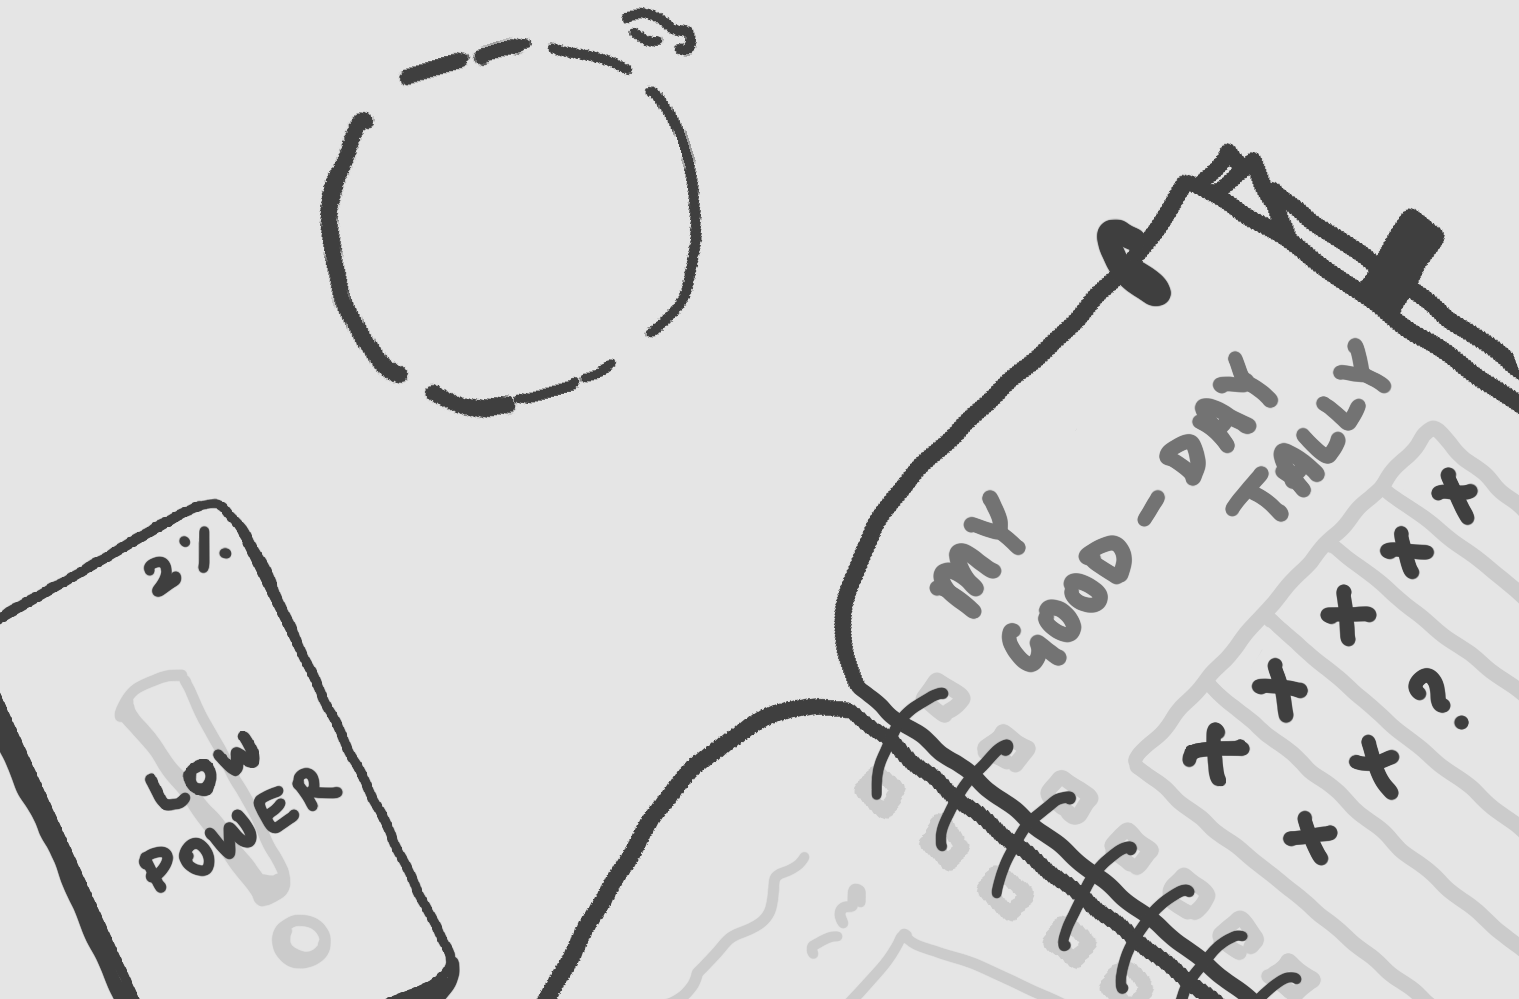 2%
LOW
POWER
MY
GOOD-DAY
TALLY
X
X
X
X ?
X X
X